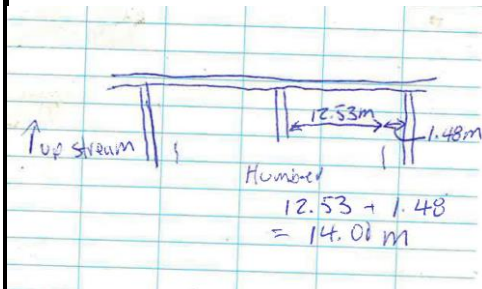 12.53m
1.48m
↑ up stream
Humber
12.53 + 1.48
= 14.01 m